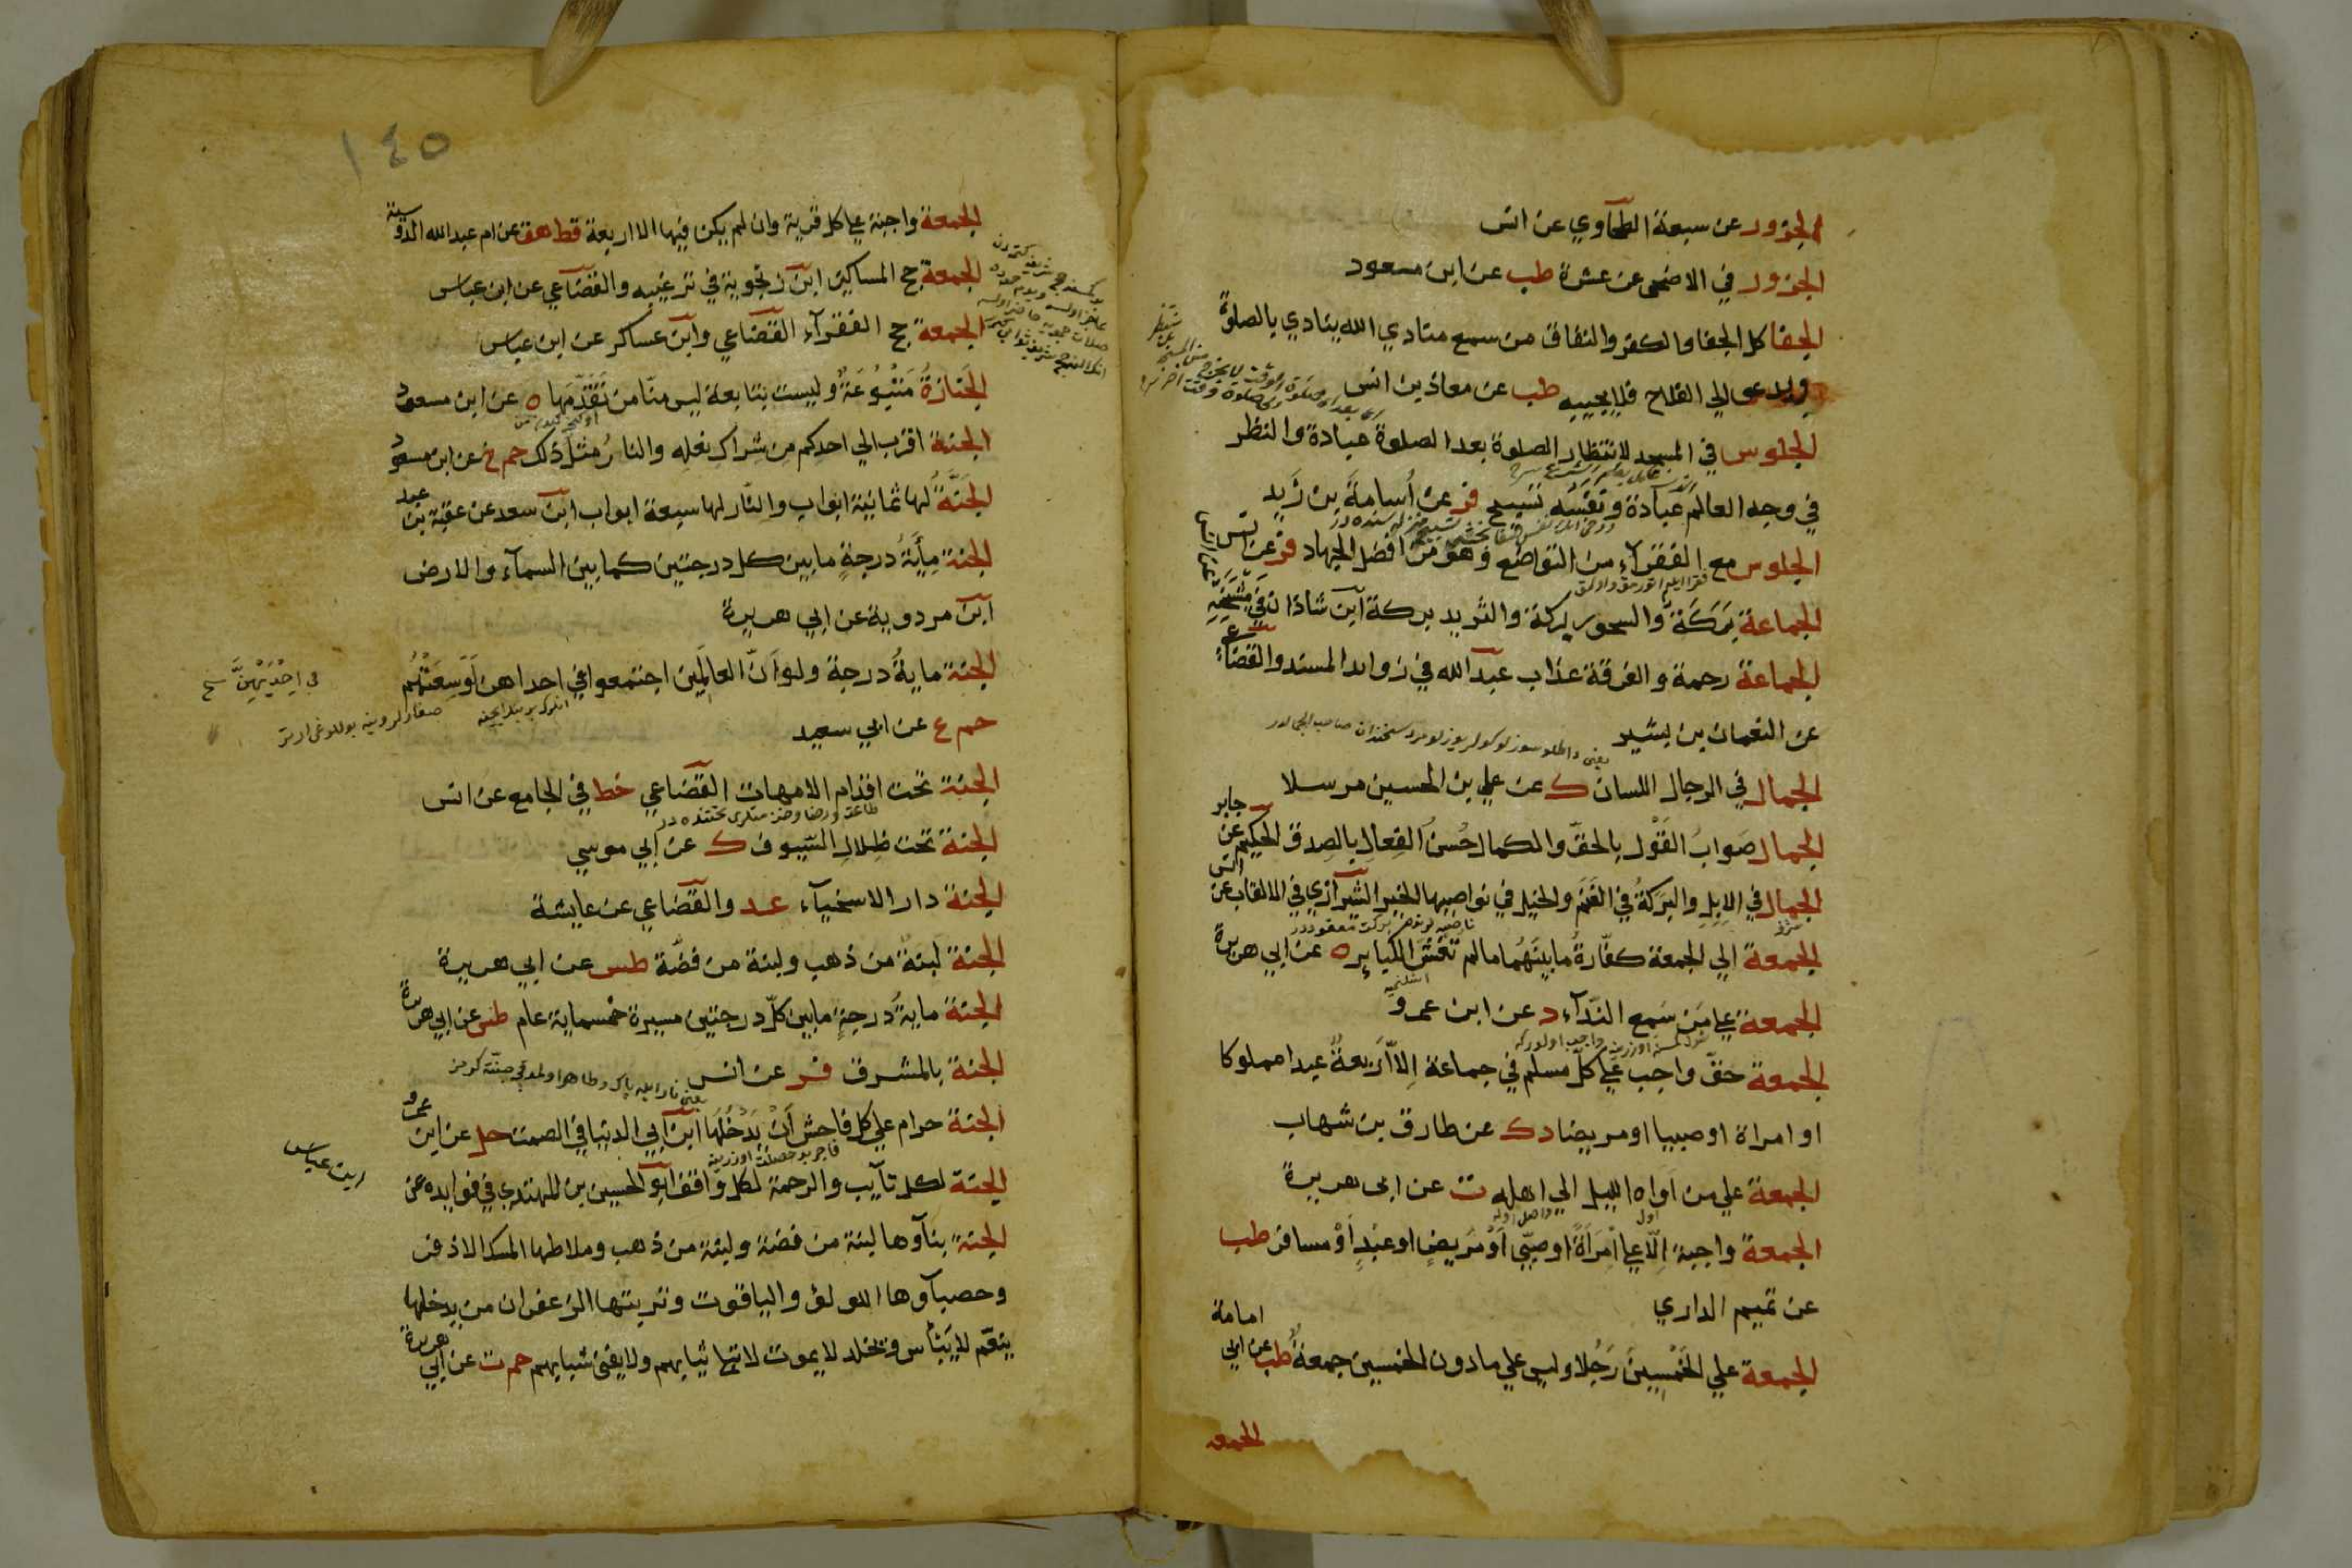 الجزور عن سبعة الطحاوي عن انس
الجزور في الاضحى عن عشرة طب عن ابن مسعود
الجفا كل الجفا والكفر والنفاق من سمع منادي الله ينادي بالصلوة
ويدعو الي الفلاح فلا يجيبه طب عن معاذ بن انس
الجلوس في المسجد لانتظار الصلوة بعد الصلوة عبادة والنظر
في وجه العالم عبادة ونفسه تسبيح فر عن أسامة بن زيد
الجلوس مع الفقرآء من التواضع وهو من افضل الجهاد فر عن انس
الجماعة بركة والسحور بركة والثريد بركة ابن شاذان في مشيخته
الجماعة رحمة والفرقة عذاب عبد الله في زوايد المسند والقضاعي
عن النعمان بن بشير
الجمال في الرجال اللسان ك عن علي بن الحسين مرسلا
الجمال صواب القول بالحق والكمال حسن الفعال بالصدق الحكيم عن جابر
الجمال في الابل والبركة في الغنم والخيل في نواصيها الخير الشيرازي في الالقاب عن انس
الجمعة الي الجمعة كفارة ما بينهما ما لم تغش الكباير ه عن ابي هريرة
الجمعة علي من سمع الندآء د عن ابن عمرو
الجمعة حق واجب علي كل مسلم في جماعة الا اربعة عبدا مملوكا
او امراة او صبيا او مريضا د ك عن طارق بن شهاب
الجمعة علي من آواه الليل الي اهله ت عن ابي هريرة
الجمعة واجبة الا علي امرأة او صبي او مريض او عبد او مسافر طب
عن تميم الداري
الجمعة علي الخمسين رجلا وليس علي ما دون الخمسين جمعة طب عن ابي امامة
الجمعة
١٤٥
الجمعة واجبة علي كل قرية وان لم يكن فيها الا اربعة قط هق عن ام عبد الله الدوسية
الجمعة حج المساكين ابن زنجوية في ترغيبه والقضاعي عن ابن عباس
الجمعة حج الفقرآء القضاعي وابن عساكر عن ابن عباس
الجنازة متبوعة وليست بتابعة ليس منا من تقدمها ه عن ابن مسعود
الجنة اقرب الي احدكم من شراك نعله والنار مثل ذلك حم خ عن ابن مسعود
الجنة لها ثمانية ابواب والنار لها سبعة ابواب ابن سعد عن عقبة بن عبد
الجنة مأية درجة ما بين كل درجتين كما بين السمآء والارض
ابن مردوية عن ابي هريرة
الجنة ماية درجة ولو ان العالمين اجتمعوا في احداهن لوسعتهم
في احديهن نسخ
حم ع عن ابي سعيد
الجنة تحت اقدام الامهات القضاعي خط في الجامع عن انس
الجنة تحت ظلال السيوف ك عن ابي موسي
الجنة دار الاسخيآء عد والقضاعي عن عايشة
الجنة لبنة من ذهب ولبنة من فضة طس عن ابي هريرة
الجنة ماية درجة ما بين كل درجتين مسيرة خمسماية عام طس عن ابي هريرة
الجنة بالمشرق فر عن انس
الجنة حرام علي كل فاحش أن يدخلها ابن ابي الدنيا في الصمت حل عن ابن عمرو
الجنة لكل تآيب والرحمة لكل واقف ابو الحسين بن المهتدي في فوايده عن
ابن عباس
الجنة بنآوها لبنة من فضة ولبنة من ذهب وملاطها المسك الاذفر
وحصبآوها اللولؤ والياقوت وتربتها الزعفران من يدخلها
ينعم لا يبأس ويخلد لا يموت لا تبلا ثيابهم ولا يفني شبابهم حم ت عن ابي هريرة